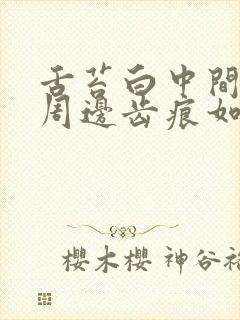 舌苔白中間
周邊齿痕如
櫻木櫻 神谷裕